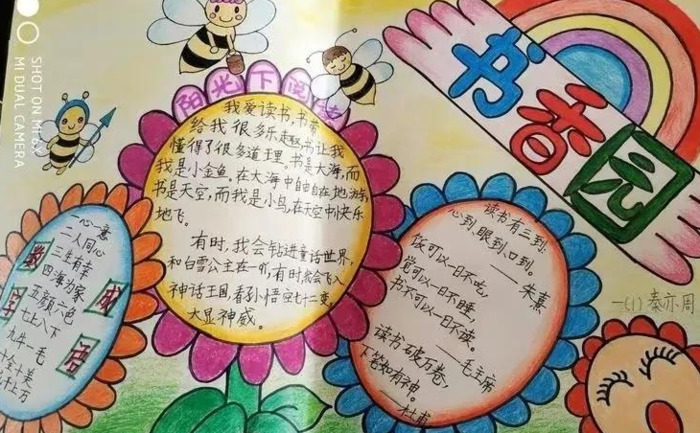 SHOT ON MI 6X
MI DUAL CAMERA
书香园
阳光下阅读
我爱读书,书带
给我很多乐趣,书让我
懂得了很多道理。书是大海,而
我是小金鱼。在大海中自由自在地游泳,
书是天空,而我是小鸟,在天空中快乐
地飞。
有时,我会钻进童话世界,
和白雪公主在一piece
神话王国看孙悟空七十二变,
大显神威。
数字成语
一心一意
二人同心
三生有幸
四海为家
五颜六色
七上八下
九牛一毛
十全十美
读书有三到:
心到、眼到、口到。
——朱熹
饭可以一日不吃,
觉可以一日不睡,
书不可以一日不读。
——毛主席
读书破万卷,
下笔如有神。
——杜甫
一(1) 秦亦周